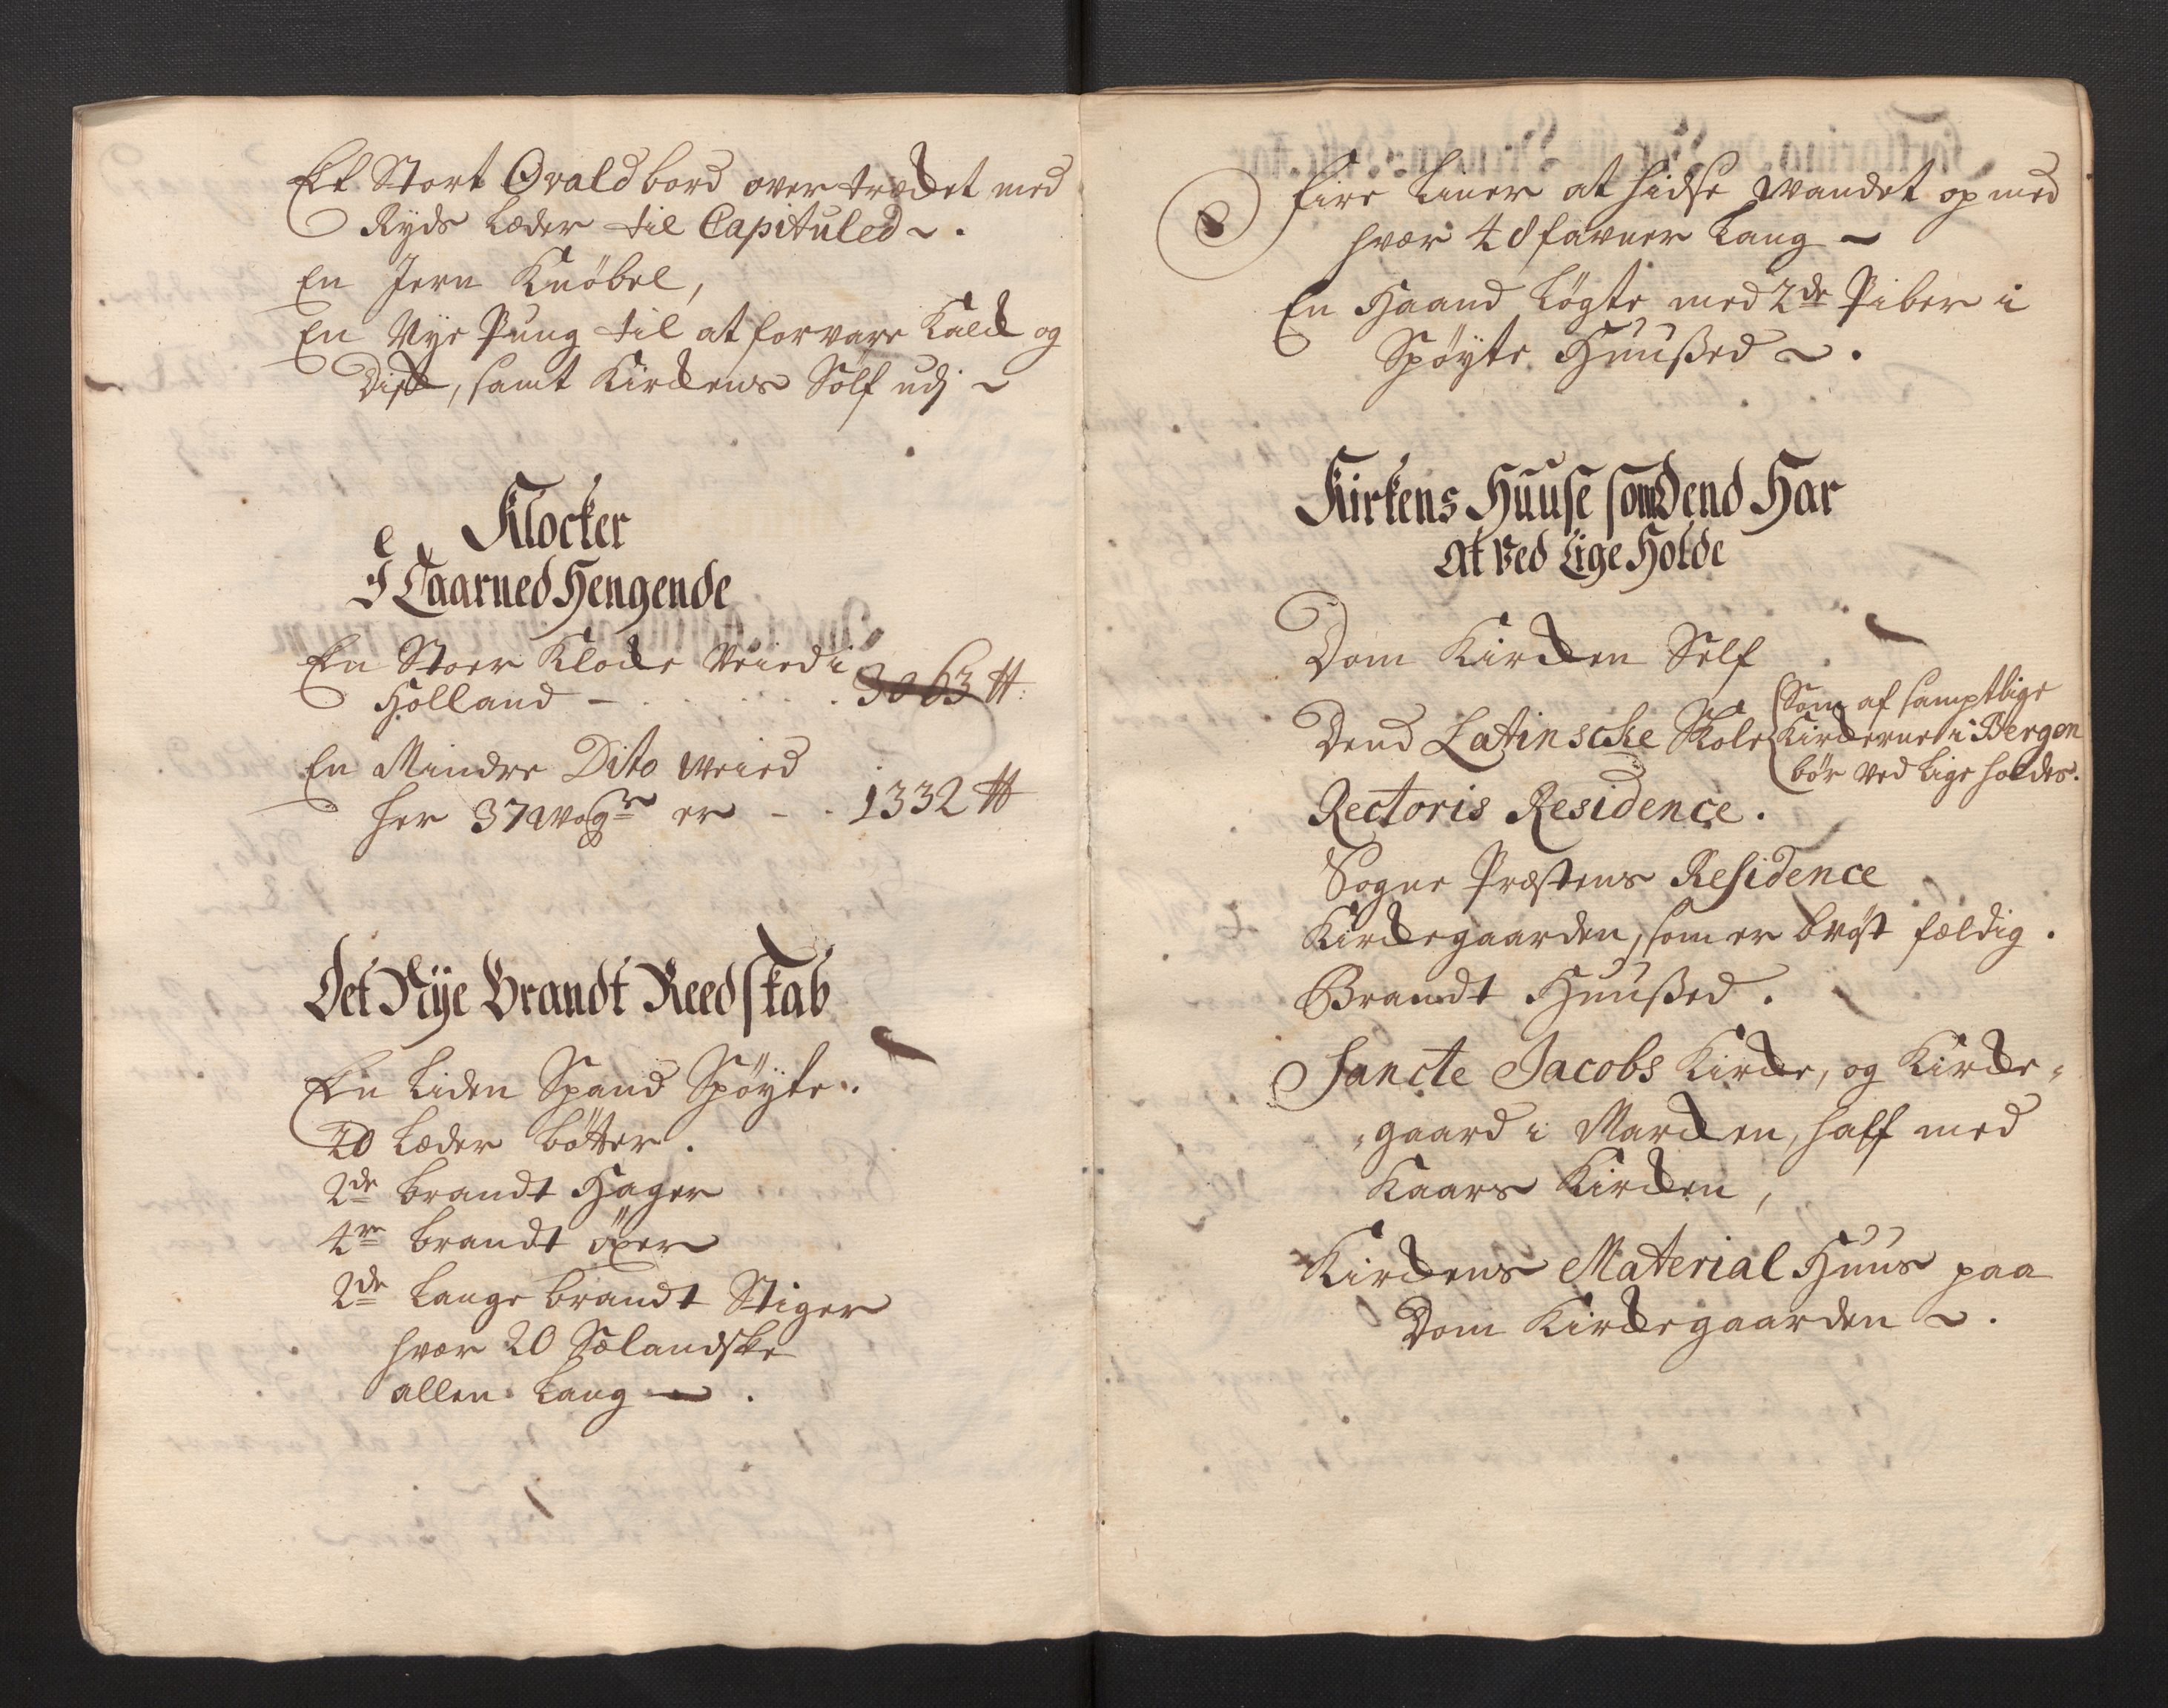 Et Stort Ovald bord over trecket med
Ryds Læder til Capituled ~.
En Jern Knöbel,
En Nye Pung til at forvare Kalck og
Disk, samt Kirckens Sölf udj ~
Klocker
I Taarned Hengende
En Stoer Klocke Veied i
Holland – . . . . . 3063 ℔:
En Mindre Dito Weied
her 37 Wog er – . 1332 ℔
Det Nÿe Brandt Reedskab
En Liden Spand Spöyte.
20 Læder bötter.
2de brandt Hager
4re brandt öxer
2de Lange brandt Stiger
hver 20 Sælandske
allen Lang — .
Fire Liner at hidse Wandet op med
hver 48 favner Lang ~
En Haand Lögte med 2de Piber i
Spöyte Huußed ~.
Kirkens Huuse som Dend Har
At Ved Lige Holde
Dom Kircken Self
Dend Latinsche Skole (Som af samptlige
Kirckerne i Bergen
bör ved Lige holdes.
Rectoris Residence.
Sogne Præstens Residence
Kirckegaarden, som er bröst fældig.
Brandt Huußed.
Sancte Jacobs Kircke, og Kircke=
=gaard i Marcken, half med
Kaars Kircken,
Kirckens Material Huus paa
Dom Kirckegaarden ~.